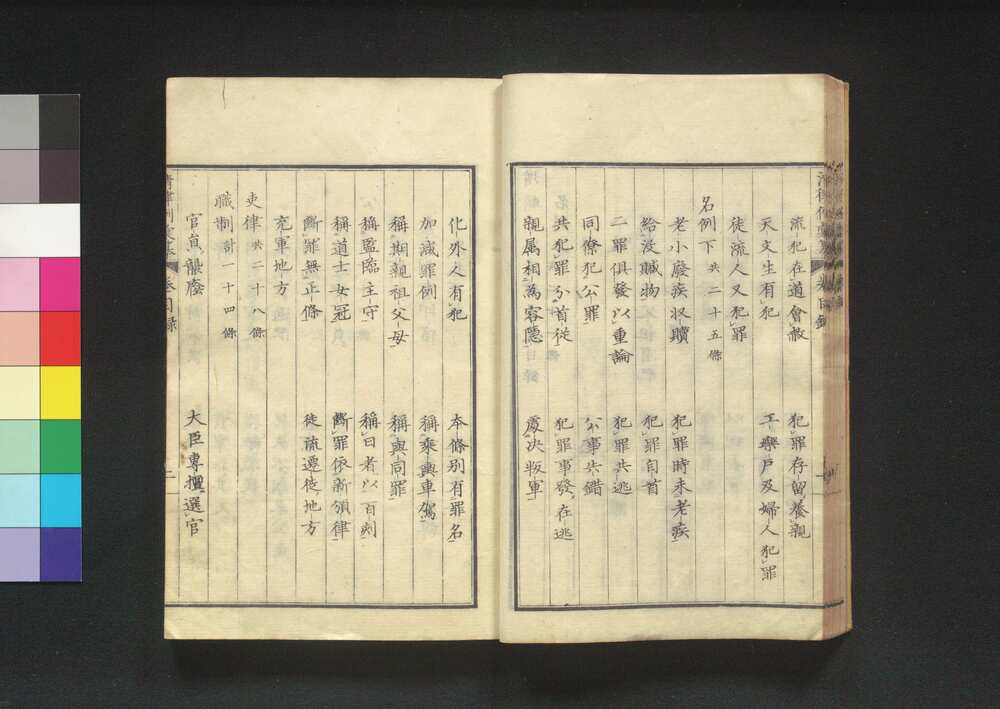 流犯在道會赦　犯罪存留養親
天文生有犯　工樂戸及婦人犯罪
徒流人又犯罪
名例下 共二十五條
老小廢疾収贖　犯罪時未老疾
給沒贓物　犯罪自首
二罪俱發以重論　犯罪共逃
同僚犯公罪　公事失錯
共犯罪分首從　犯罪事發在逃
親属相為容隱　處決叛軍
化外人有犯　本條別有罪名
加减罪例　稱乘輿車駕
稱期親祖父母　稱與同罪
稱監臨主守　稱日者以百刻
稱道士女冠　斷罪依新頒律
斷罪無正條　徒流遷徙地方
充軍地方
吏律 共二十八條
職制 計一十四條
官員襲廕　大臣專擅選官